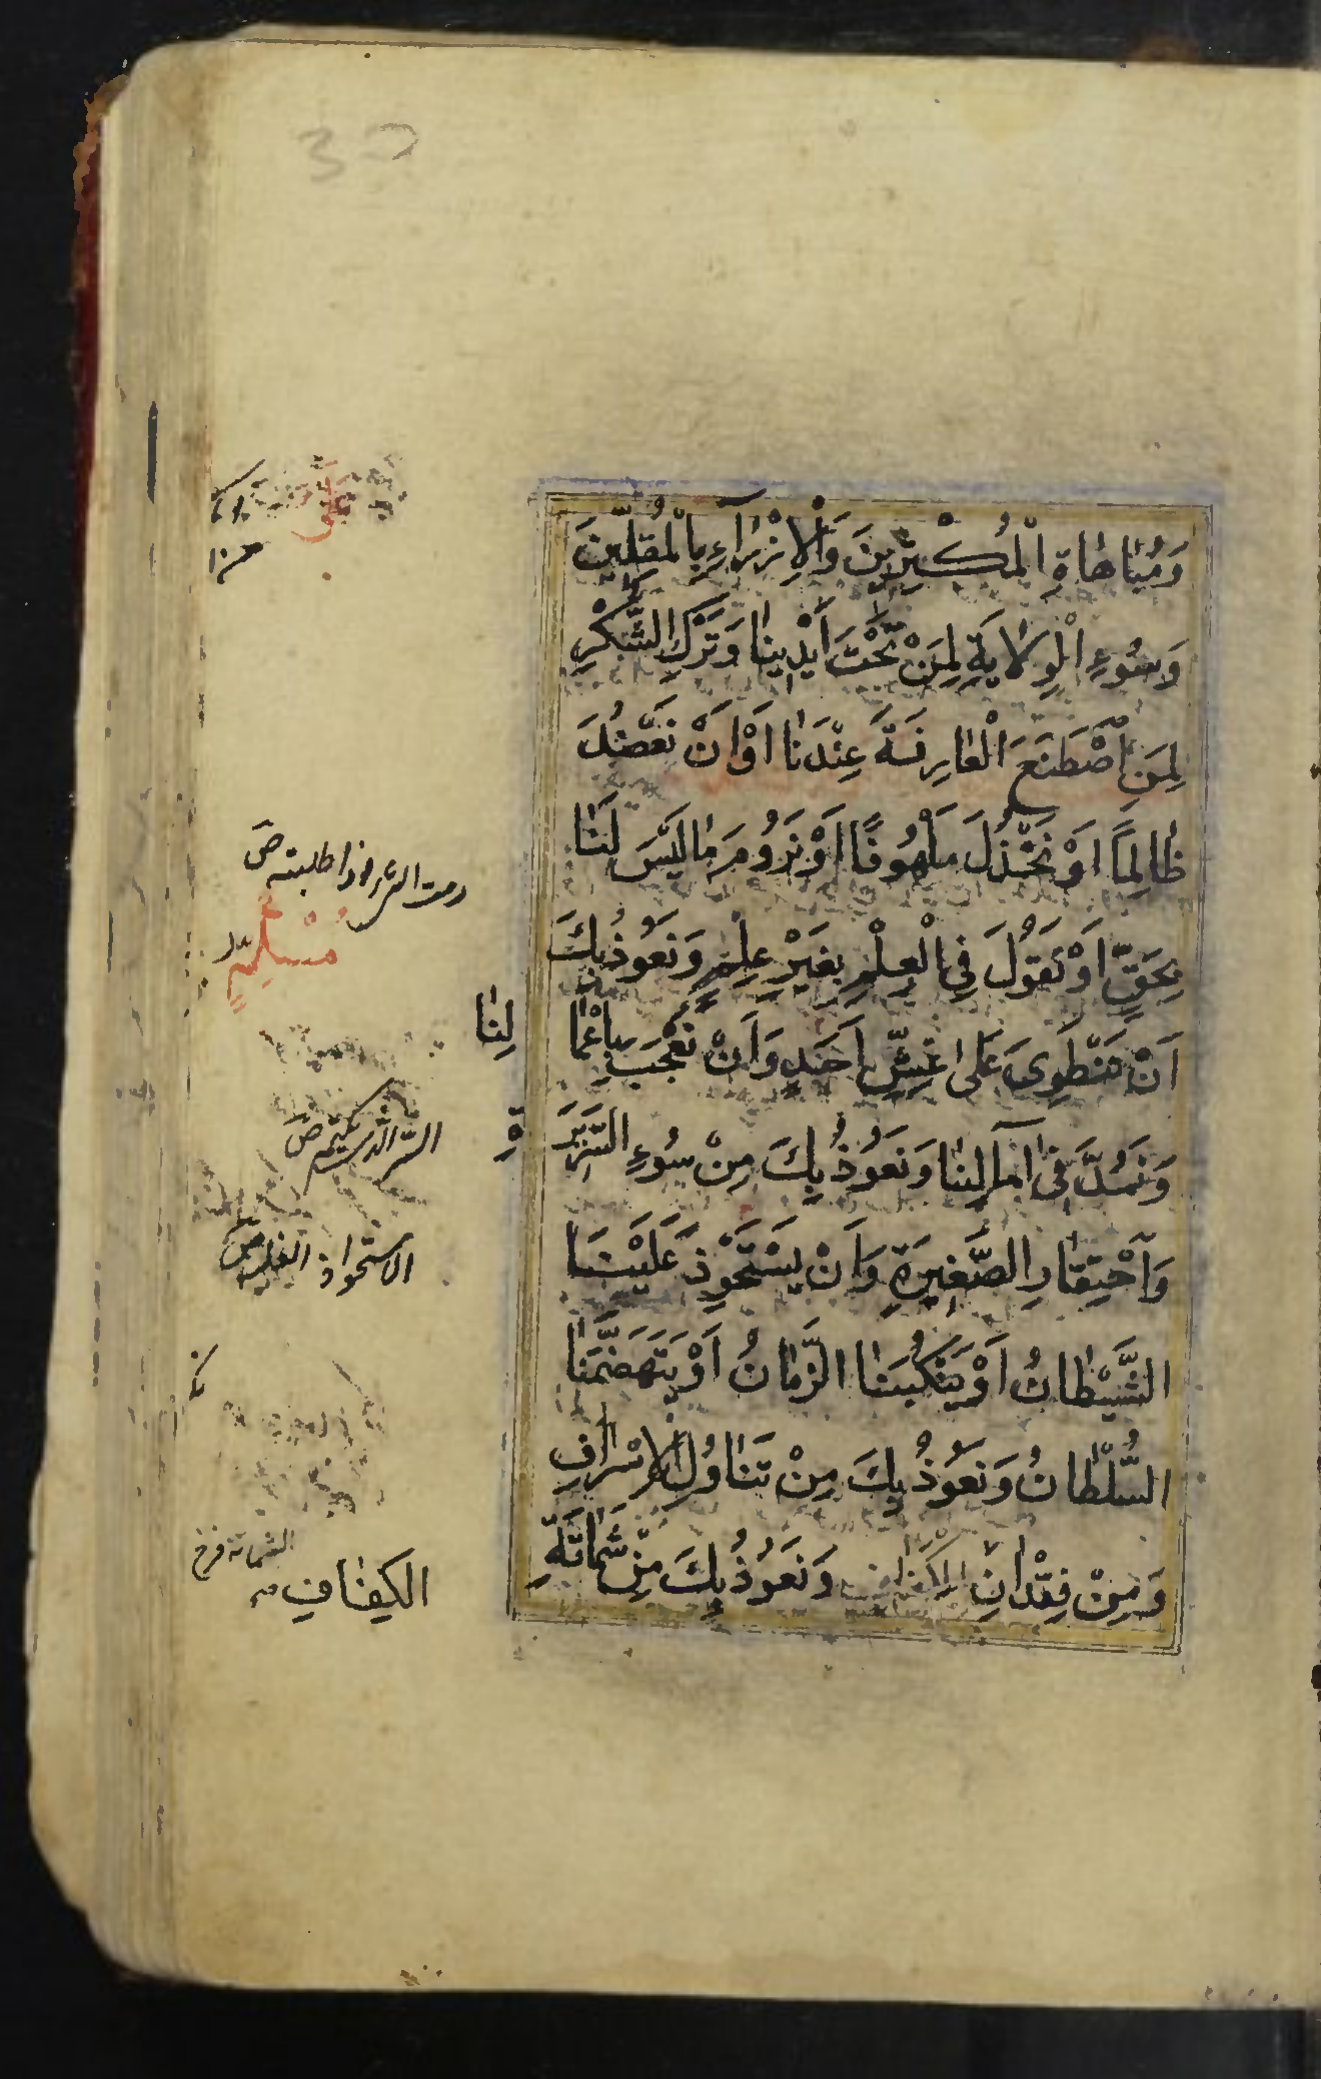 وَمُبَاهَاةِ الْمُكْثِرِينَ وَالْاِزْرَآءِ بِالْمُقِلِّينَ
وَسُوءِ الْوِلَايَةِ لِمَنْ تَحْتَ اَيْدِينَا وَتَرْكِ الشُّكْرِ
لِمَنِ اصْطَنَعَ الْعَارِفَةَ عِنْدَنَا اَوْ اَنْ نَعْضُدَ
ظَالِمًا اَوْ نَخْذُلَ مَلْهُوفًا اَوْ نَرُومَ مَا لَيْسَ لَنَا
بِحَقٍّ اَوْ نَقُولَ فِي الْعِلْمِ بِغَيْرِ عِلْمٍ وَنَعُوذُ بِكَ
اَنْ نَنْطَوِيَ عَلٰى غِشِّ اَحَدٍ وَاَنْ نُعْجَبَ بِاَعْمَا
لِنَا
وَنَمُدَّ فِي اٰمَالِنَا وَنَعُوذُ بِكَ مِنْ سُوءِ السَّرِيرَ
ةِ
وَاحْتِقَارِ الصَّغِيرَةِ وَاَنْ يَسْتَحْوِذَ عَلَيْنَا
الشَّيْطَانُ اَوْ يَنْكُبَنَا الزَّمَانُ اَوْ يَتَهَضَّمَنَا
السُّلْطَانُ وَنَعُوذُ بِكَ مِنْ تَنَاوُلِ الْاِسْرَافِ
وَمِنْ فِقْدَانِ الكفاف وَنَعُوذُ بِكَ مِنْ شَمَاتَةِ
رمت الشىء اذا طلبته ص
السر الذى يكتم ص
الاستحواذ الغلبة ص
الشماتة فرح
الكِفَافِ